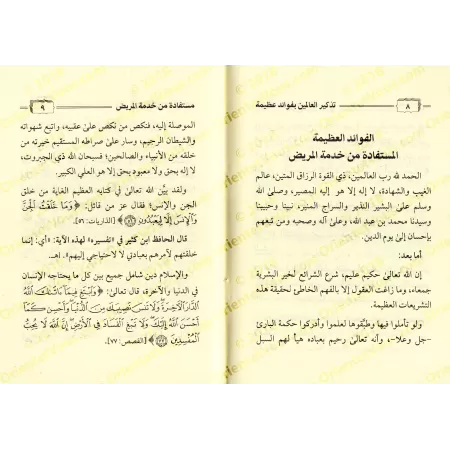 ٨
تذكير العالمين بفوائد عظيمة
الفوائد العظيمة
المستفادة من خدمة المريض
الحمد لله رب العالمين، ذي القوة الرزاق المتين، عالم
الغيب والشهادة، لا إله إلا هو إليه المصير، وصلىٰ الله
وسلم علىٰ البشير النذير والسراج المنير، نبينا وحبيبنا
وسيدنا محمد بن عبد الله، وعلىٰ آله وصحبه ومن تبعهم
بإحسان إلىٰ يوم الدين.
أما بعد:
إن الله تعالىٰ حكيم عليم، شرع الشرائع لخير البشرية
جمعاء، وما زاغت العقول إلا بالفهم الخاطئ لحقيقة هذه
التشريعات العظيمة.
ولو تأملوا فيها وطبَّقوها لعلموا وأدركوا حكمة البارئ
-جل وعلا-، وأنه تعالىٰ رحيم بعباده هيأ لهم السبل
مستفادة من خدمة المريض
٩
الموصلة إليه، فنكص من نكص علىٰ عقبيه، واتبع شهواته
والشيطان الرجيم، وسار علىٰ صراطه المستقيم خيرته من
خلقه من الأنبياء والصالحين؛ فسبحان الله ذي الجبروت،
لا إله بحق ولا معبود بحق إلا هو العلي الكبير.
ولقد بيَّن الله تعالىٰ في كتابه العظيم الغاية من خلق
الجن والإنس؛ فقال عز من قائل: ﴿وَمَا خَلَقْتُ ٱلْجِنَّ
وَٱلْإِنسَ إِلَّا لِيَعْبُدُونِ ۝٥٦﴾ [الذاريات: ٥٦].
قال الحافظ ابن كثير في «تفسيره» لهذه الآية: «أي: إنما
خلقتهم لآمرهم بعبادتي لا لاحتياجي إليهم». اهـ.
والإسلام دين شامل جميع بين كل ما يحتاجه الإنسان
في الدنيا والآخرة، قال تعالىٰ: ﴿وَٱبْتَغِ فِيمَآ ءَاتَىٰكَ ٱللَّهُ
ٱلدَّارَ ٱلْـَٔاخِرَةَ وَلَا تَنسَ نَصِيبَكَ مِنَ ٱلدُّنْيَا وَأَحْسِن كَمَآ
أَحْسَنَ ٱللَّهُ إِلَيْكَ وَلَا تَبْغِ ٱلْفَسَادَ فِى ٱلْأَرْضِ إِنَّ ٱللَّهَ لَا يُحِبُّ
ٱلْمُفْسِدِينَ ۝٧٧﴾ [القصص: ٧٧].